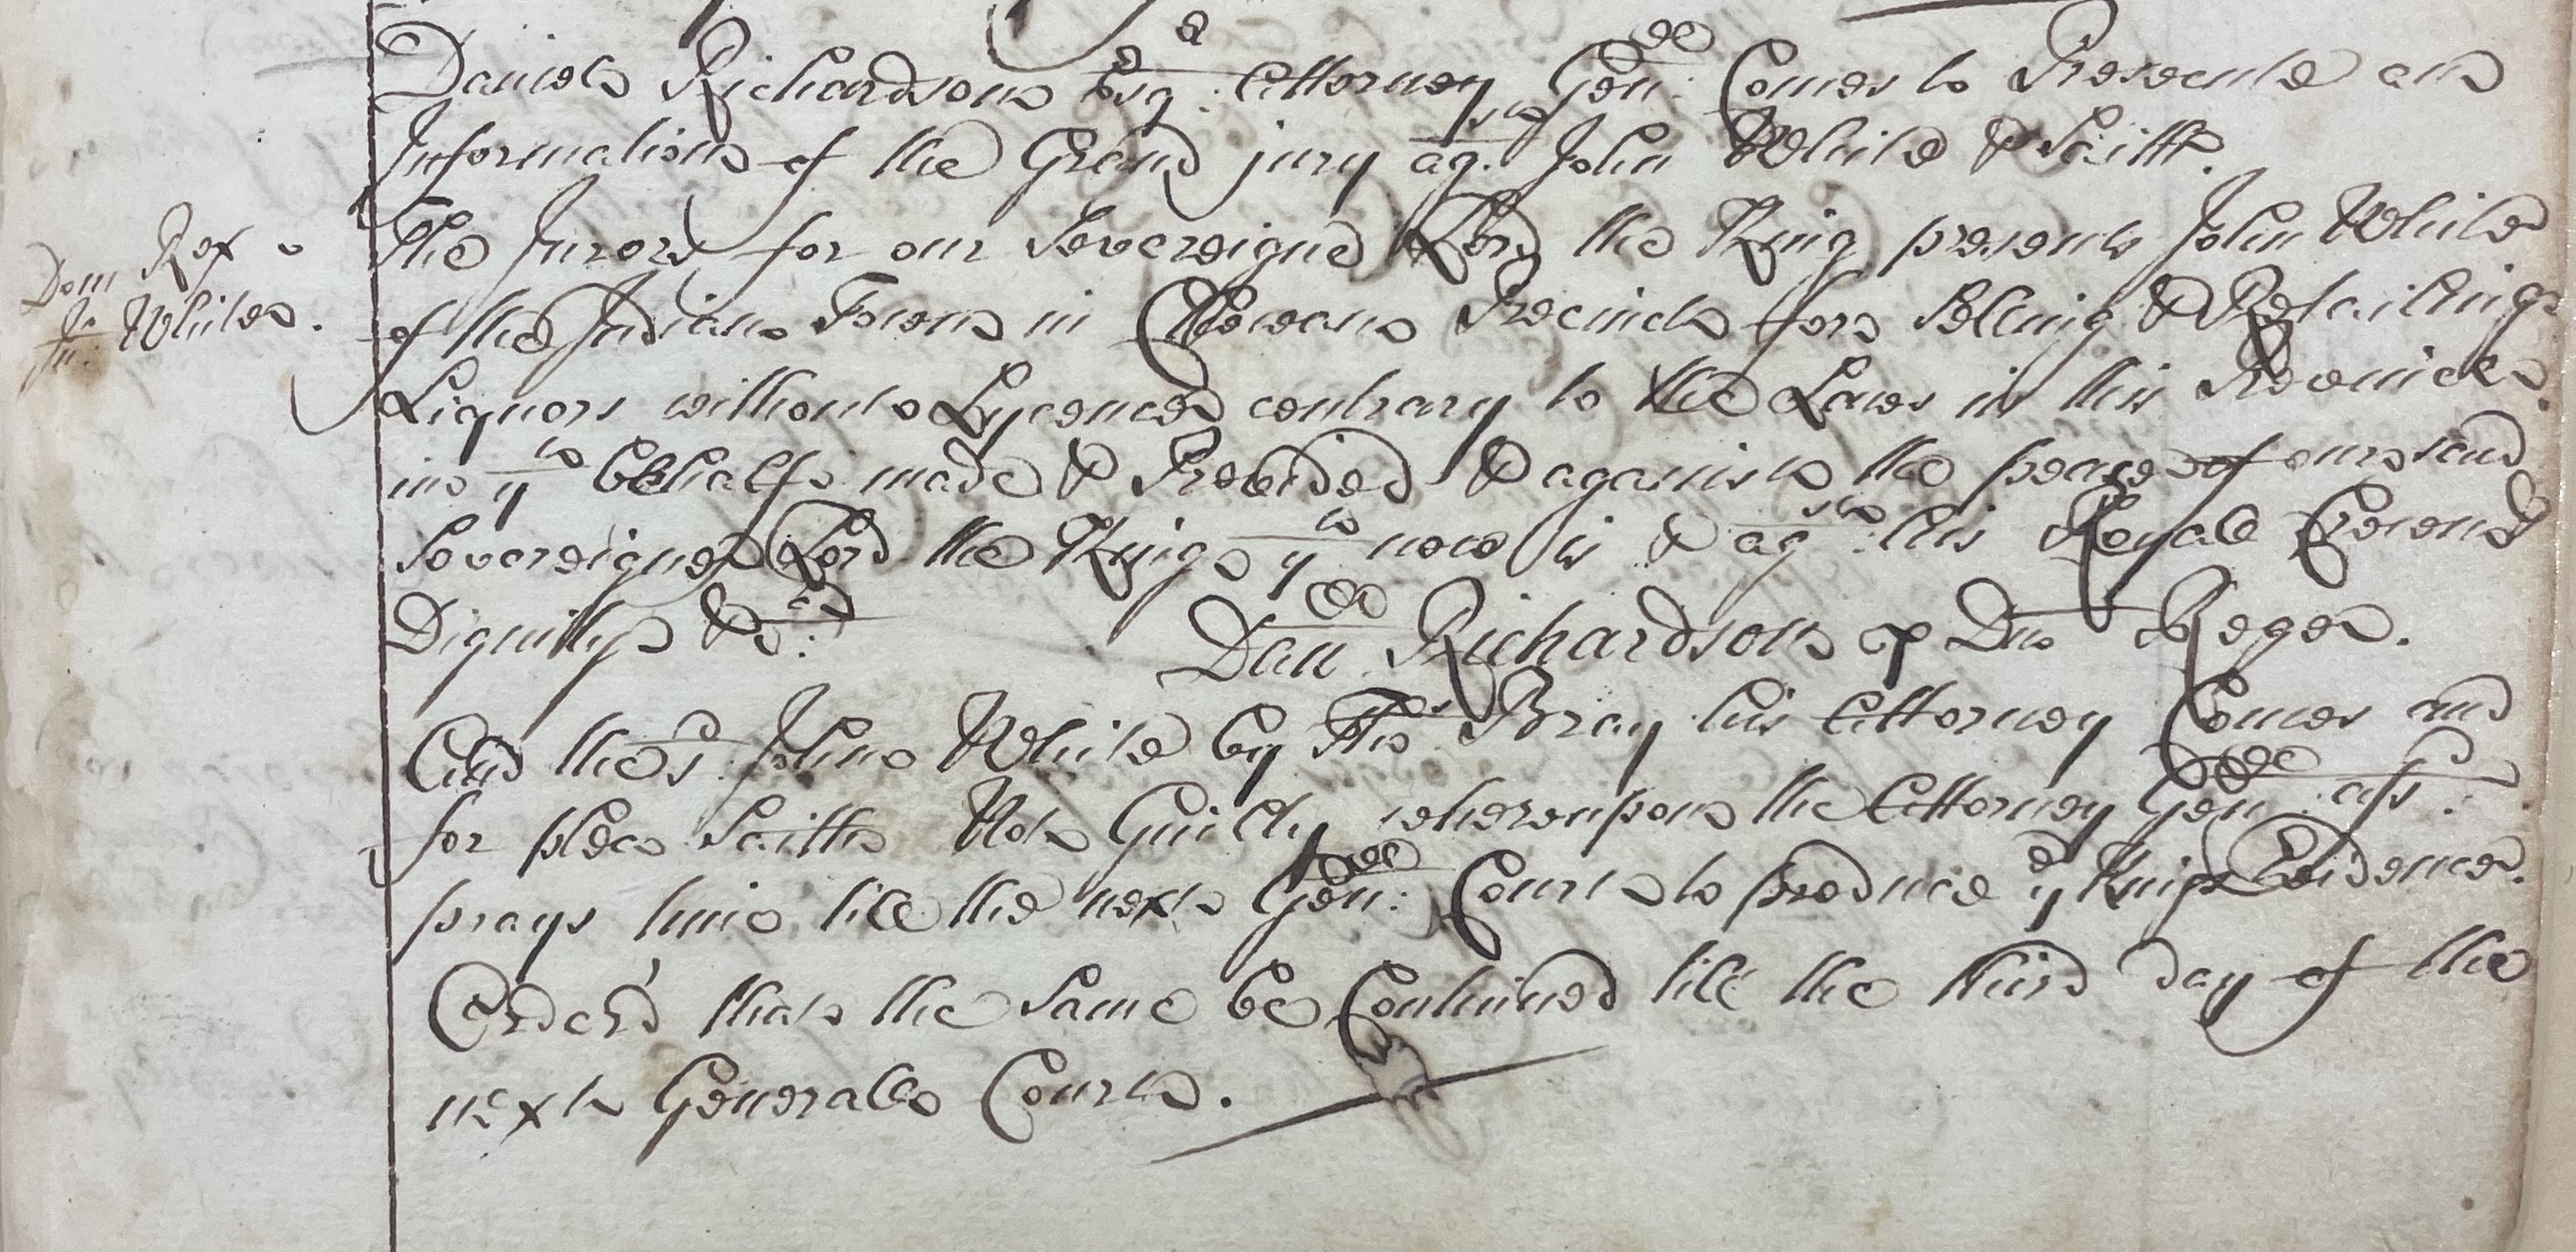 Daniel Richardson Esqr. Attorney Genll: Comes to Prosecute an
Information of the Grand jury agst. John White & Saith.
The Jurors for our Sovereigne Lord the King presents John White
Dom Rex
vs
Jn: White.
of the Indian Town in Chowan Precinct for Selling & Retailing
Liquors without Lycence contrary to the Laws in this Province
in yt behalfe made & Provided & against the peace of our said
Sovereigne Lord the King yt now is & agst: his Royall Crown &
Dignity &ca:
Danll Richardson p Dno Rege.
And the sd. John White by Thos Bray his Attorney Comes and
for plea Saith Not Guilty whereupon the Attorney Genll: afsd.
prays time till the next Genll: Court to produce ye Kings Evidence.
Order'd that the same be Continued till the third day of the
next Generall Court.